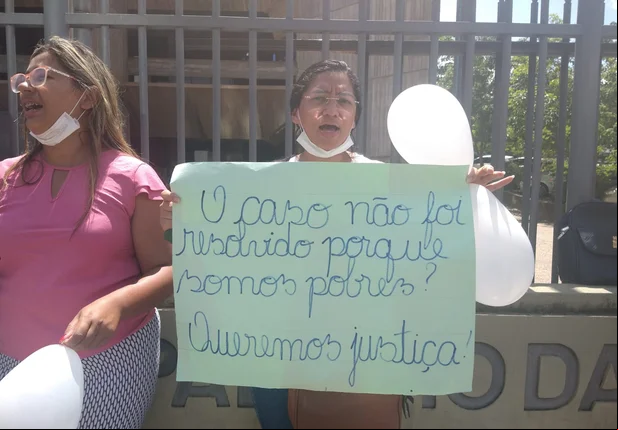 O caso não foi
resolvido porque
somos pobres?
Queremos justiça!